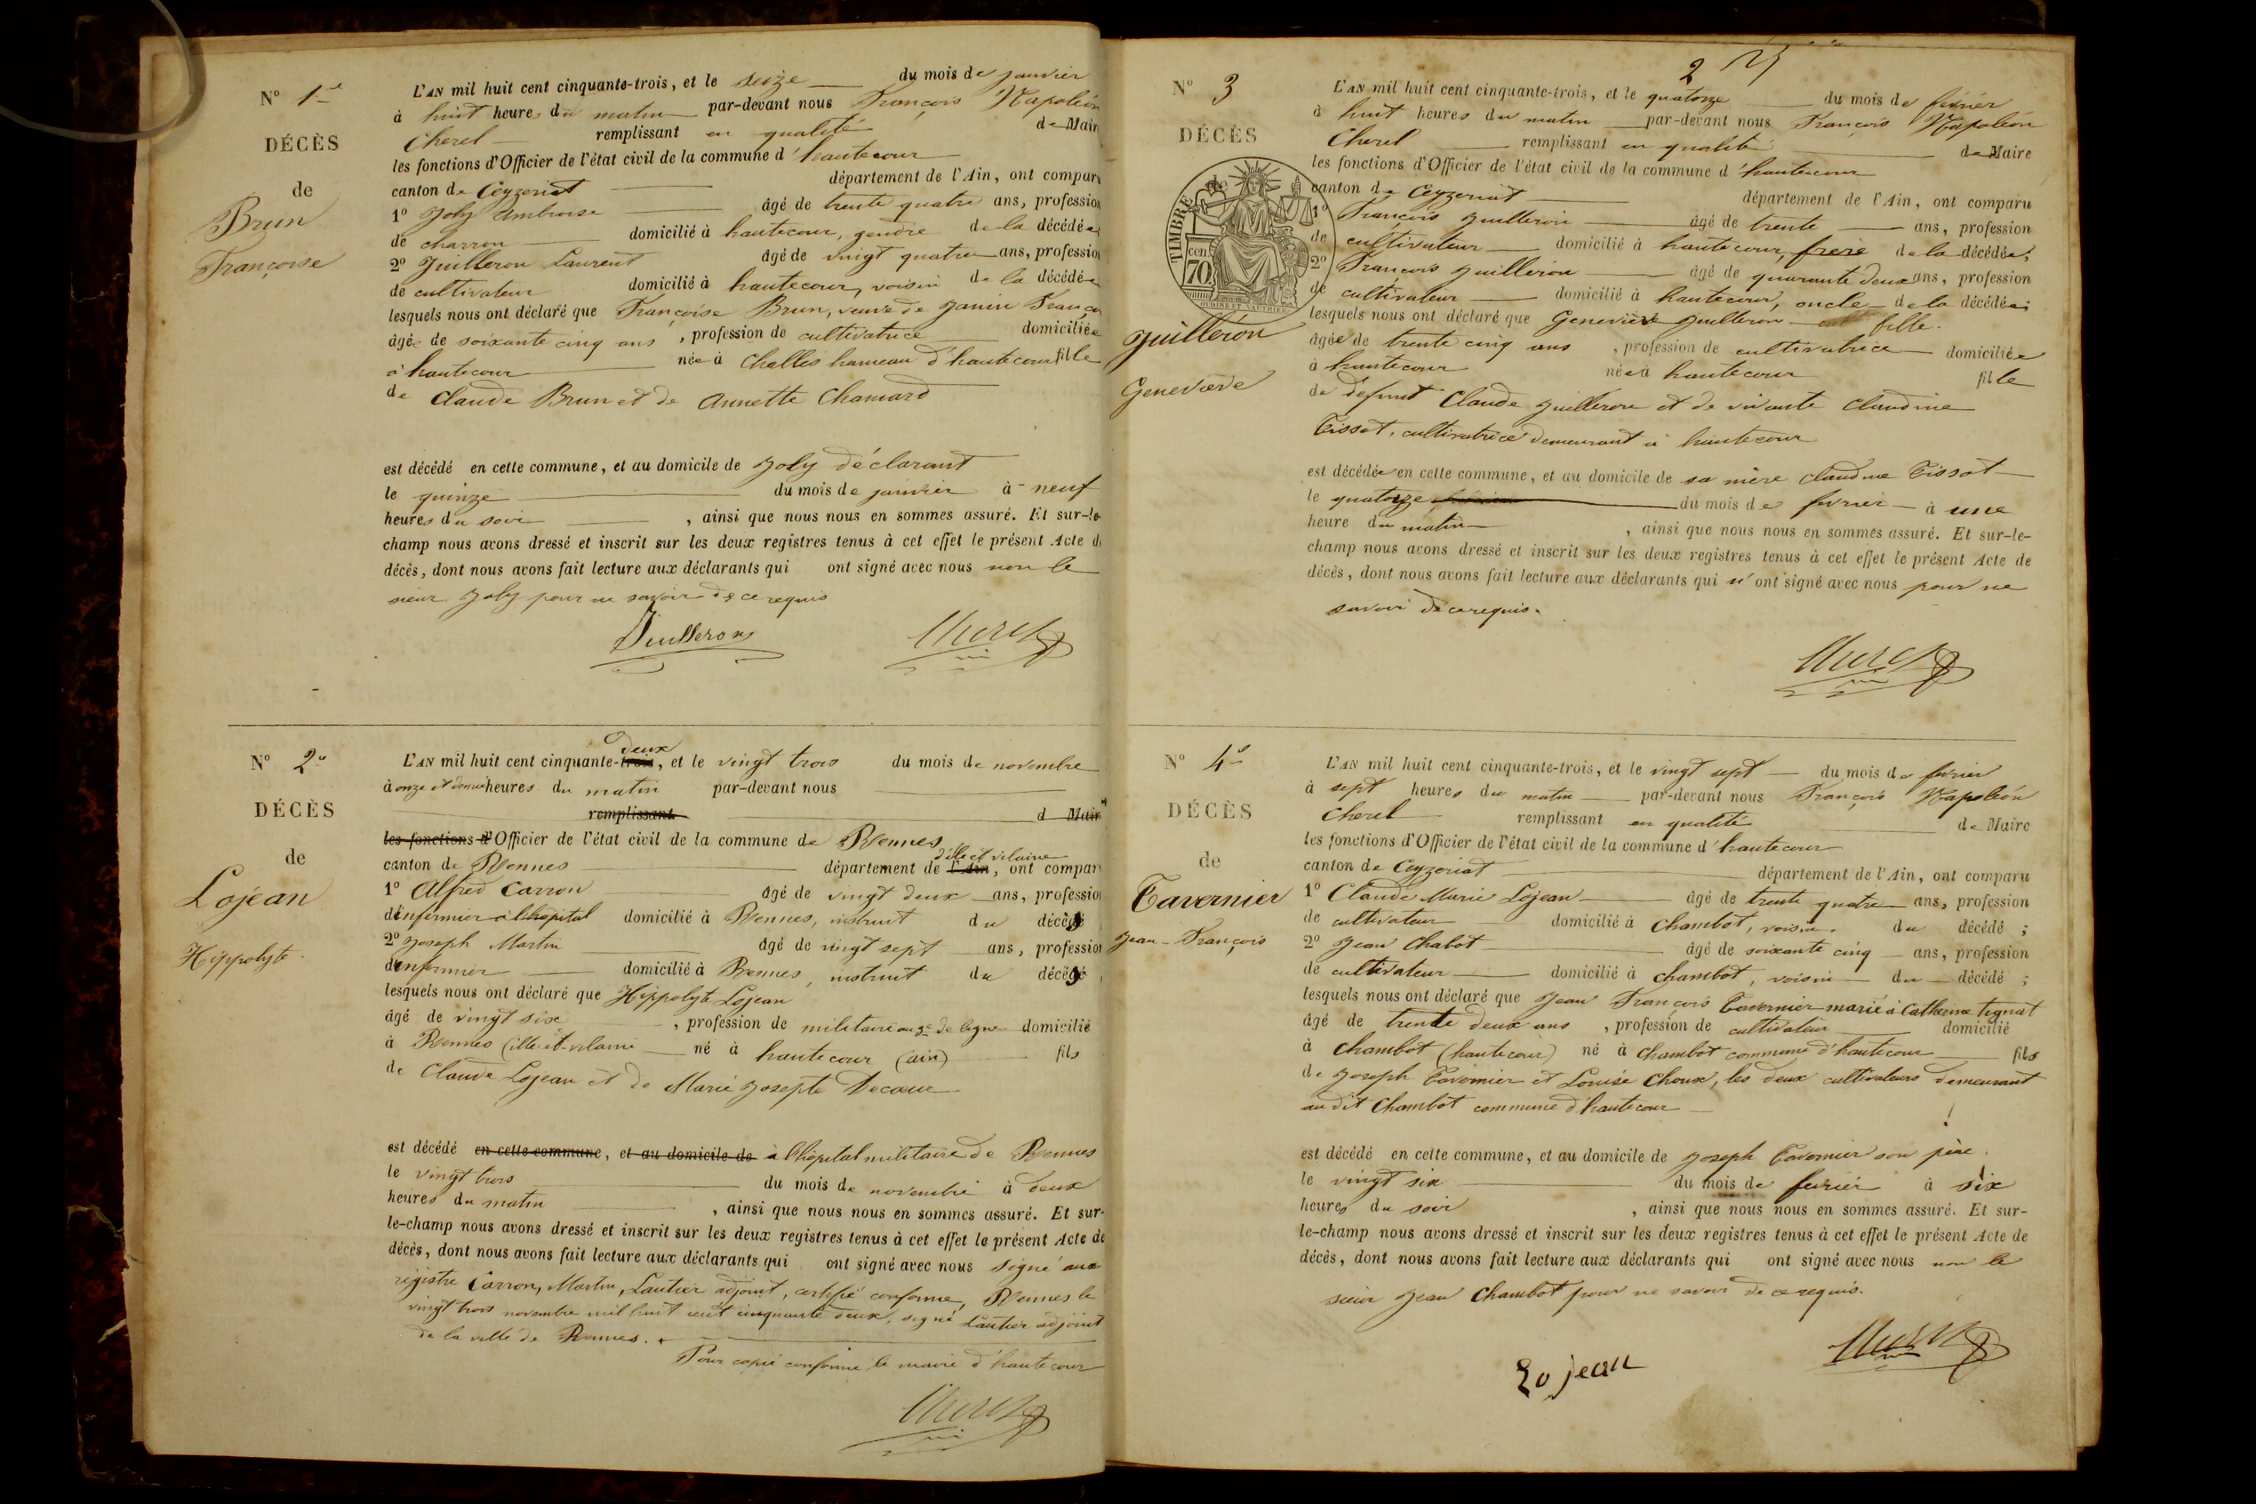 N° 1er
DÉCÈS
de
Brun
Françoise
L'AN mil huit cent cinquante-trois, et le seize du mois de janvier
à huit heures du matin par-devant nous François Napoléon
Cherel remplissant en qualité de Maire
les fonctions d'Officier de l'état civil de la commune d'hautecour
canton de Ceyzeriat département de l'Ain, ont comparu
1° Joly Ambroise âgé de trente quatre ans, profession
de charron domicilié à hautecour, gendre de la décédée
2° Juilleron Laurent âgé de vingt quatre ans, profession
de cultivateur domicilié à hautecour, voisin de la décédée
lesquels nous ont déclaré que Françoise Brun, veuve de Janin François
âgée de soixante cinq ans, profession de cultivatrice domiciliée
à hautecour née à Challes hameau d'hautecour fille
de Claude Brun et de Annette Chanard
est décédé en cette commune, et au domicile de Joly déclarant
le quinze du mois de janvier à neuf
heures du soir, ainsi que nous nous en sommes assuré. Et sur-le-
champ nous avons dressé et inscrit sur les deux registres tenus à cet effet le présent Acte de
décès, dont nous avons fait lecture aux déclarants qui ont signé avec nous non le
sieur Joly pour ne savoir de ce requis
Juilleron Cherel
N° 2e
DÉCÈS
de
Lojean
Hippolyte.
L'AN mil huit cent cinquante-trois deux, et le vingt trois du mois de novembre
à onze et demie heures du matin par-devant nous
remplissant d Maire
les fonctions d'Officier de l'état civil de la commune de Rennes
canton de Rennes département de l'Ain d'ille et vilaine, ont comparu
1° Alfred Carron âgé de vingt deux ans, profession
d'infirmier à l'hôpital domicilié à Rennes, instruit du décès
2° Joseph Martin âgé de vingt sept ans, profession
d'infirmier domicilié à Rennes, instruit du décès
lesquels nous ont déclaré que Hippolyte Lojean
âgé de vingt six, profession de militaire au de ligne domicilié
à Rennes (ille-et-vilaine né à hautecour (ain) fils
de Claude Lojean et de Marie Josephte Decoeur
est décédé en cette commune, et au domicile de à l'hôpital militaire de Rennes
le vingt trois du mois de novembre à deux
heures du matin, ainsi que nous nous en sommes assuré. Et sur-
le-champ nous avons dressé et inscrit sur les deux registres tenus à cet effet le présent Acte de
décès, dont nous avons fait lecture aux déclarants qui ont signé avec nous signé aux
registre Carron, Martin, Lautier adjoint, certifié conforme, Rennes le
vingt trois novembre mil huit cent cinquante deux, signé Lautier adjoint
de la ville de Rennes.
Pour copie conforme le maire d'hautecour
Cherel
2
N° 3
DÉCÈS
de
TIMBRE
70 cen
Juilleron
Geneviève
L'AN mil huit cent cinquante-trois, et le quatorze du mois de février
à huit heures du matin par-devant nous François Napoléon
Cherel remplissant en qualité de Maire
les fonctions d'Officier de l'état civil de la commune d'hautecour
canton de Ceyzeriat département de l'Ain, ont comparu
1° François Juilleron âgé de trente ans, profession
de cultivateur domicilié à hautecour, frère de la décédée;
2° François Juilleron âgé de quarante deux ans, profession
de cultivateur domicilié à hautecour, oncle de la décédée;
lesquels nous ont déclaré que Geneviève Juilleron fille.
âgée de trente cinq ans, profession de cultivatrice domiciliée
à hautecour née à hautecour fille
de défunt Claude Juilleron et de vivante Claudine
Tissot, cultivatrice demeurant à hautecour
est décédée en cette commune, et au domicile de sa mère Claudine Tissot
le quatorze du mois de février à une
heure du matin, ainsi que nous nous en sommes assuré. Et sur-le-
champ nous avons dressé et inscrit sur les deux registres tenus à cet effet le présent Acte de
décès, dont nous avons fait lecture aux déclarants qui n'ont signé avec nous pour ne
savoir de ce requis.
Cherel
N° 4e
DÉCÈS
de
Tavernier
Jean-François
L'AN mil huit cent cinquante-trois, et le vingt sept du mois de février
à sept heures du matin par-devant nous François Napoléon
Cherel remplissant en qualité de Maire
les fonctions d'Officier de l'état civil de la commune d'hautecour
canton de Ceyzeriat département de l'Ain, ont comparu
1° Claude Marie Lojean âgé de trente quatre ans, profession
de cultivateur domicilié à Chambot, voisin du décédé;
2° Jean Chabot âgé de soixante cinq ans, profession
de cultivateur domicilié à Chambot, voisin du décédé;
lesquels nous ont déclaré que Jean François Tavernier marié à Catherine Tignat
âgé de trente deux ans, profession de cultivateur domicilié
à Chambot (hautecour) né à Chambot commune d'hautecour fils
de Joseph Tavernier et Louise Choux, les deux cultivateurs demeurant
au dit Chambot commune d'hautecour
est décédé en cette commune, et au domicile de Joseph Tavernier son père.
le vingt six du mois de février à six
heures du soir, ainsi que nous nous en sommes assuré. Et sur-
le-champ nous avons dressé et inscrit sur les deux registres tenus à cet effet le présent Acte de
décès, dont nous avons fait lecture aux déclarants qui ont signé avec nous non le
sieur Jean Chambot pour ne savoir de ce requis.
Lojean Cherel